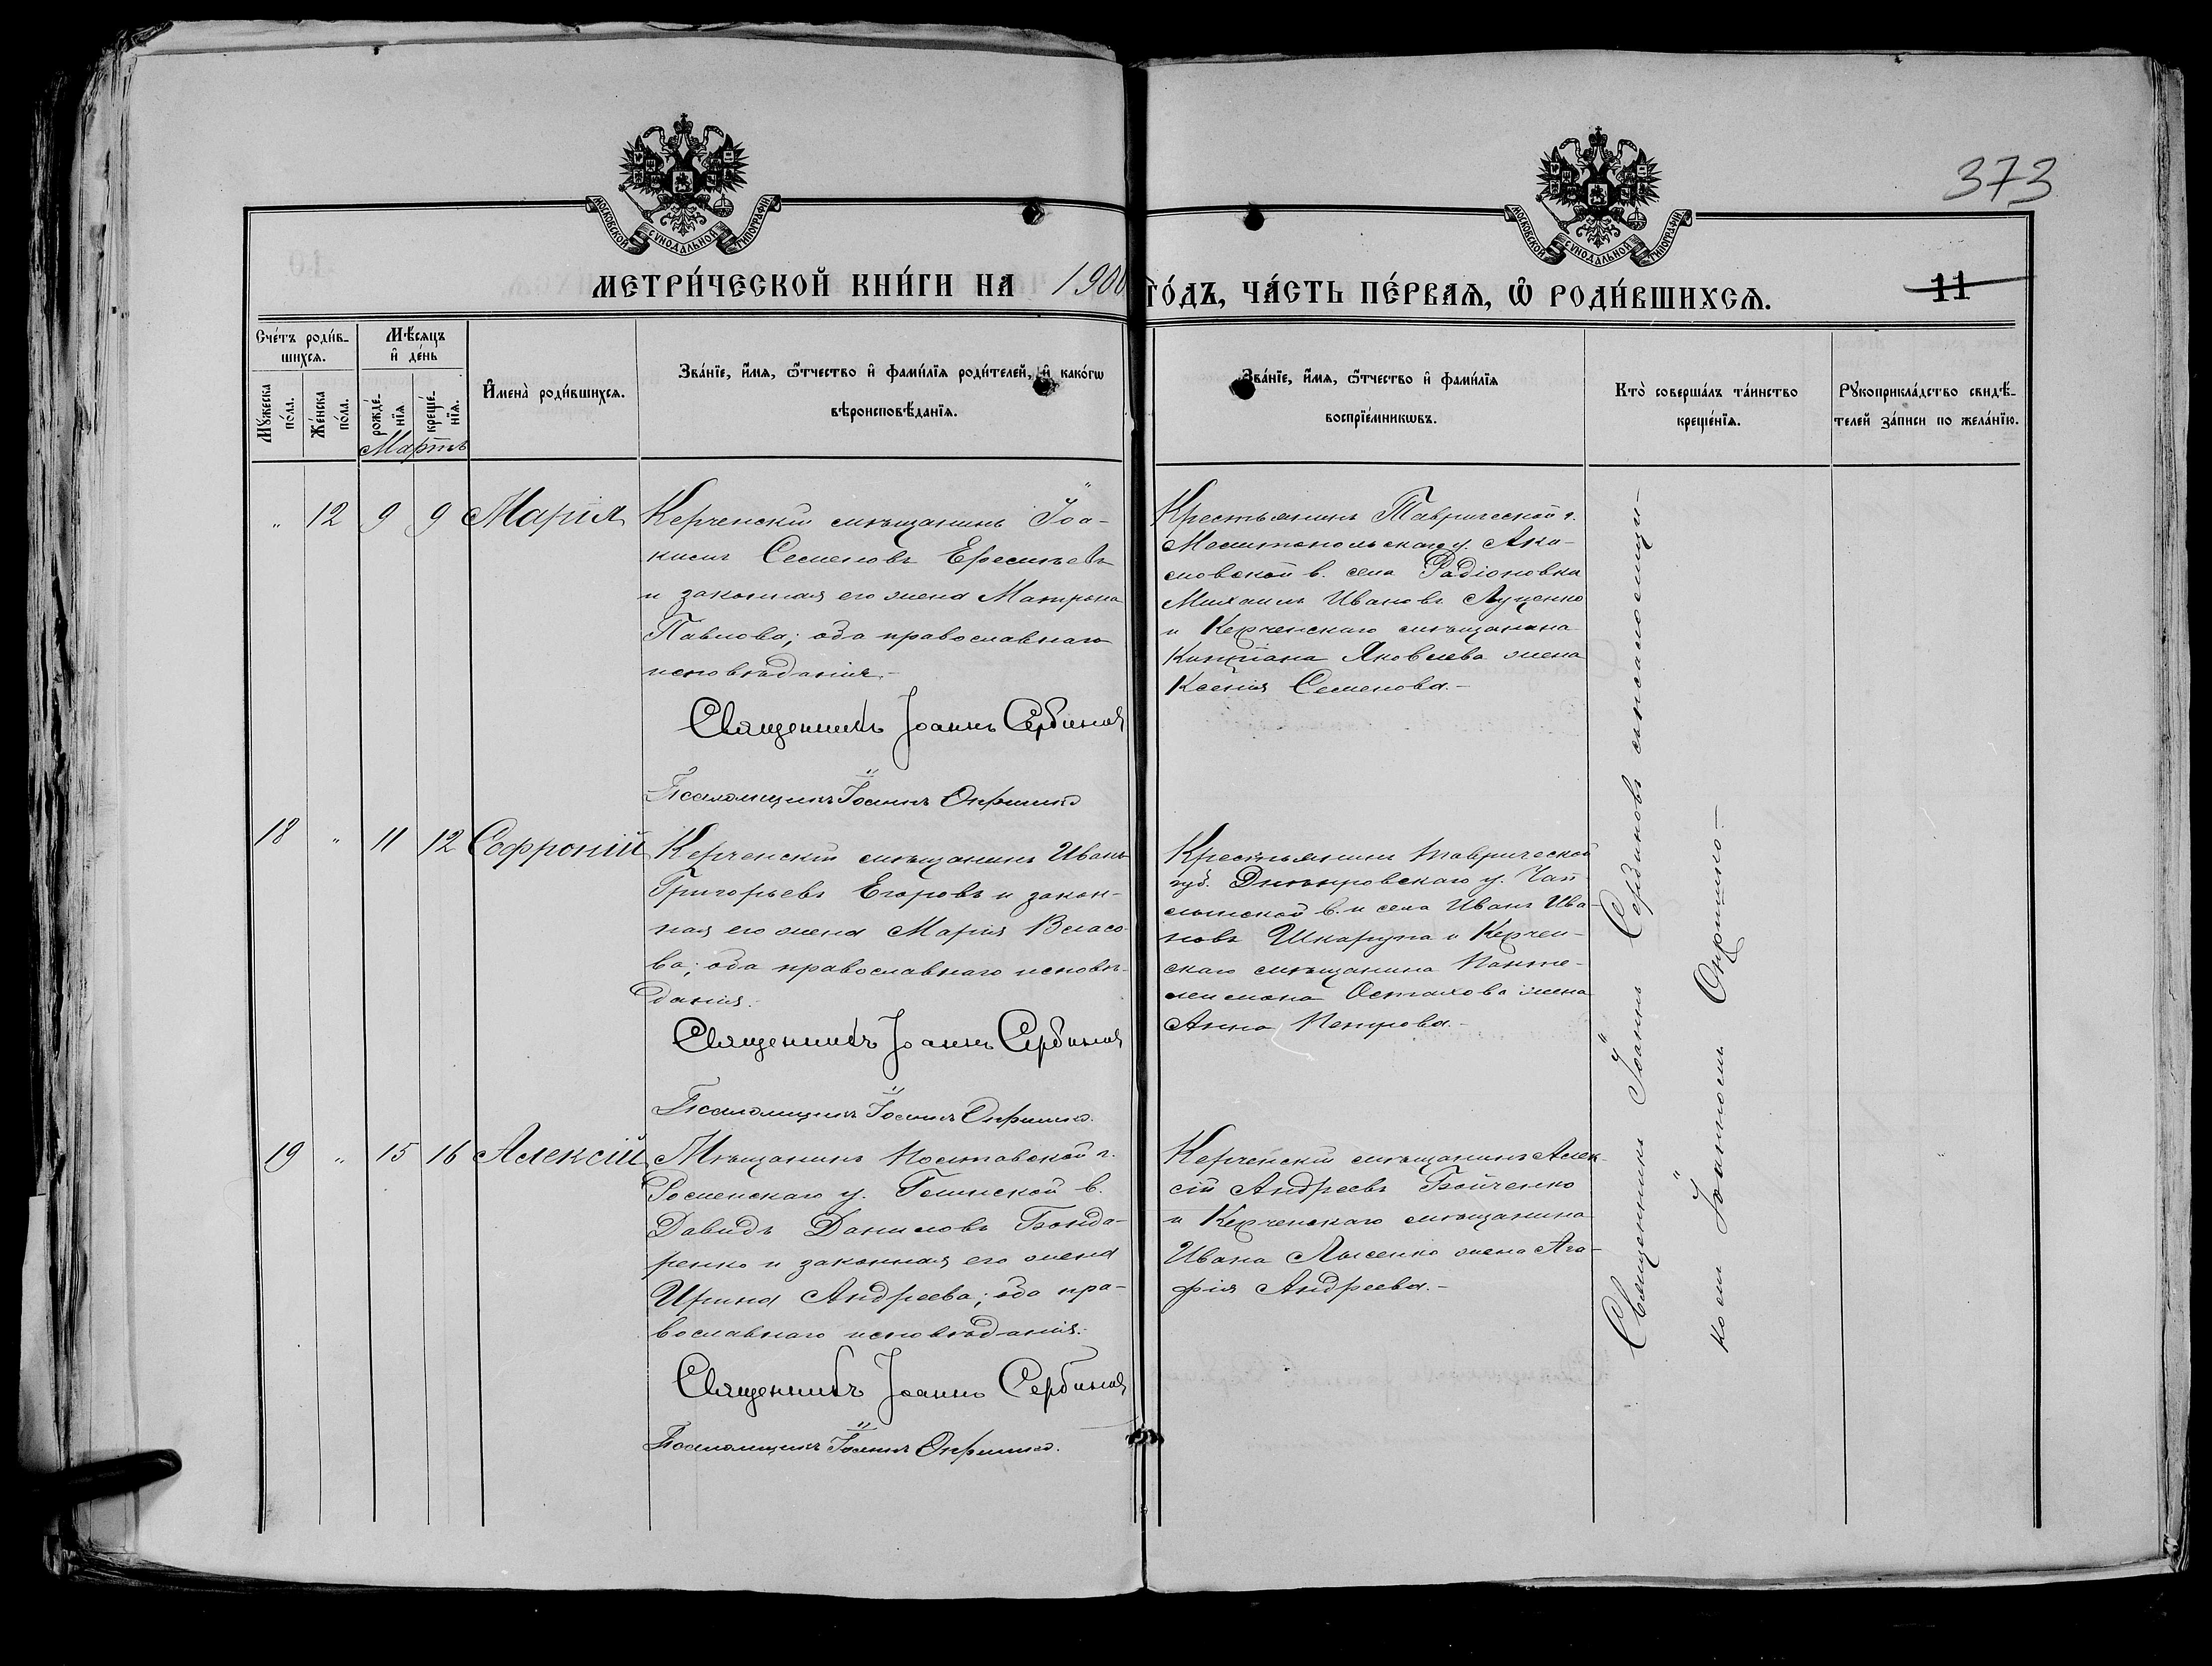 373
МОСКОВСКОЙ СѴНОДАЛЬНОЙ ТИПОГРАФІИ
МОСКОВСКОЙ СѴНОДАЛЬНОЙ ТИПОГРАФІИ
МЕТРИ́ЧЕСКОЙ КНИ́ГИ НА 1900 ГО́ДЪ, ЧА́СТЬ ПЕ́РВАѦ, Ѽ РОДИ́ВШИХСѦ.
11
Сче́тъ роди́в-
шихсѧ.
Мꙋ́жеска по́ла.
Же́нска по́ла.
Мѣ́сѧцъ
и҆ де́нь
рожде́-
нїѧ
креще́-
нїѧ.
Мартъ
И҆мена̀ роди́вшихсѧ.
Зва́нїе, и҆́мѧ, ѻ҆́тчество и҆ фами́лїѧ роди́телей, и҆ како́гѡ
вѣроисповѣ́данїѧ.
Зва́нїе, и҆́мѧ, ѻ҆́тчество и҆ фами́лїѧ
воспрїе́мникѡвъ.
Кто̀ соверша́лъ та́инство
креще́нїѧ.
Рꙋкоприкла́дство свидѣ́-
телей за́писи по жела́нїю.
" 12 9 9 Марія
Керченскій мѣщанинъ Іоа-
кимъ Семеновъ Ересьевъ
и законная его жена Матрона
Павлова; оба православнаго
исповѣданія.-
Священникъ Іоаннъ Сербиновъ
Псаломщикъ Іоаннъ Окришко
Крестьянинъ Таврической г.
Мелитопольскаго у. Аки-
мовской в. села Радіоновка
Михаилъ Ивановъ Луценко
и Керченскаго мѣщанина
Кипріана Яковлева жена
Ксенія Семенова.-
18 " 11 12 Софроній
Керченскій мѣщанинъ Иванъ
Григорьевъ Егоровъ и закон-
ная его жена Марія Власо-
ва; оба православнаго исповѣ-
данія.
Священникъ Іоаннъ Сербиновъ
Псаломщикъ Іоаннъ Окришко.
Крестьянинъ Таврической
губ. Днѣпровскаго у. Чап-
лынской в. и села Иванъ Ива-
новъ Шкарупа и Керчен-
скаго мѣщанина Панте-
леимона Остахова жена
Анна Петрова.-
19 " 15 16 Алексій
Мѣщанинъ Полтавской г.
Роменскаго у. в.
Давидъ Даниловъ Бонда-
ренко и законная его жена
Ирина Андреева; оба пра-
вославнаго исповѣданія.
Священникъ Іоаннъ Сербиновъ
Псаломщикъ Іоаннъ Окришко.
Керченскій мѣщанинъ Алек-
сій Андреевъ Бойченко
и Керченскаго мѣщанина
Ивана Лысенко жена Ага-
фія Андреева.-
Священникъ Іоаннъ Сербиновъ съ псаломщи-
комъ Іоанномъ Окришко.-